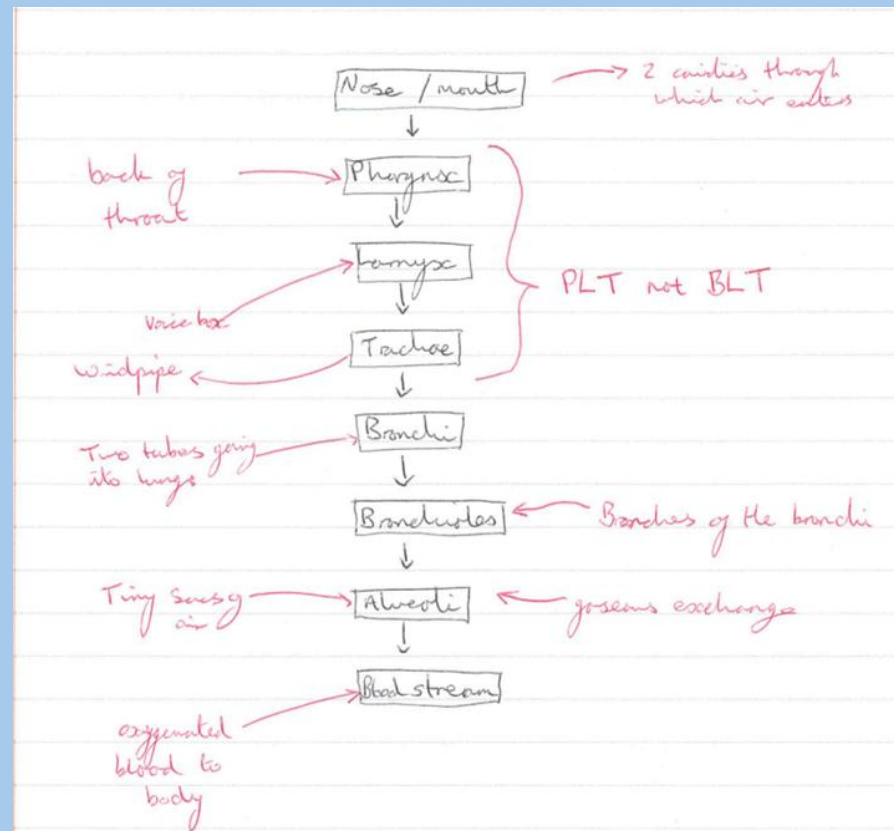 Nose / mouth
2 cavities through
which air enters
back of
throat
Pharynx
Larnysc
PLT not BLT
Voice box
Trachae
windpipe
Bronchi
Two tubes going
into lungs
Bronchioles
Branches of the bronchi
Tiny sacs of
air
Alveoli
gaseous exchange
Blood stream
oxygenated
blood to
body